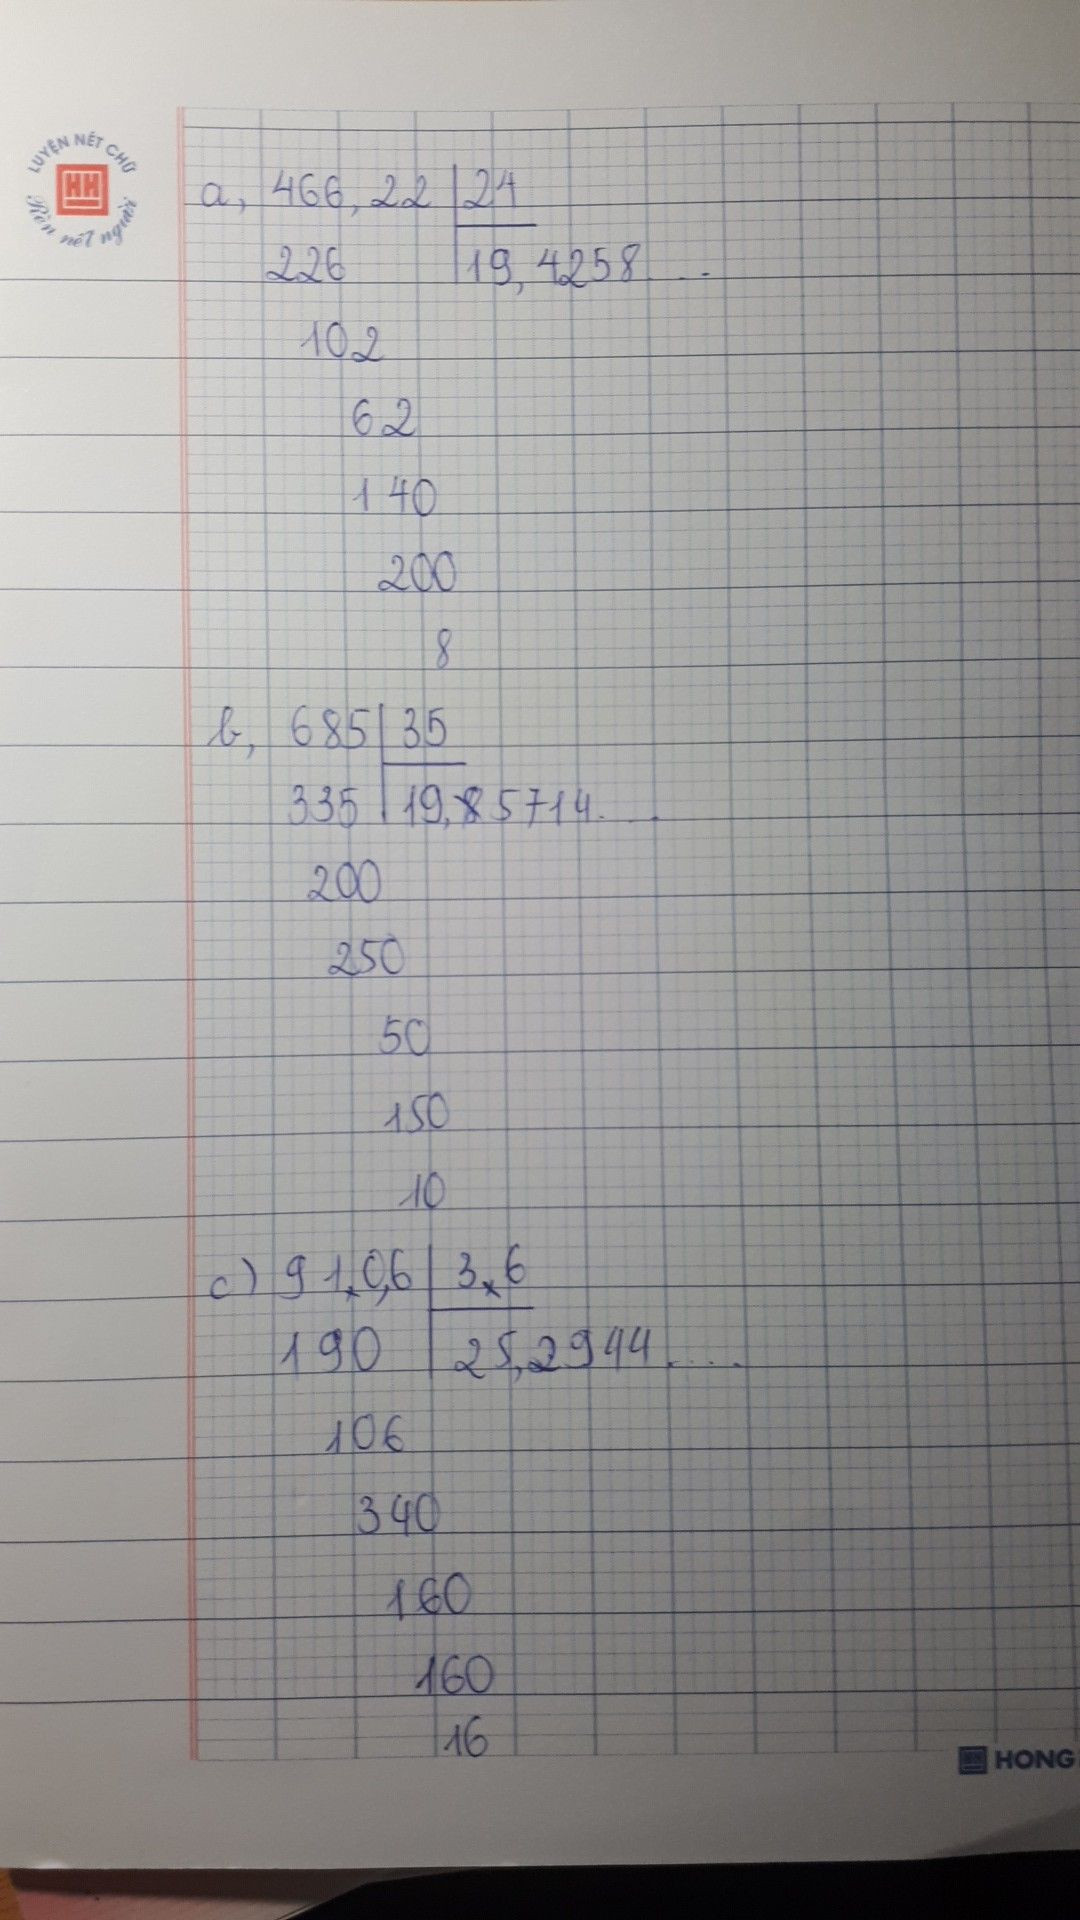 LUYỆN NÉT CHỮ
HH
Rèn nết người
a, 466,22 | 24
226 | 19,4258...
102
62
140
200
8
b, 685 | 35
335 | 19,85714...
200
250
50
150
10
c) 91,0,6 | 3,6
190 | 25,2944....
106
340
160
160
16
HONG